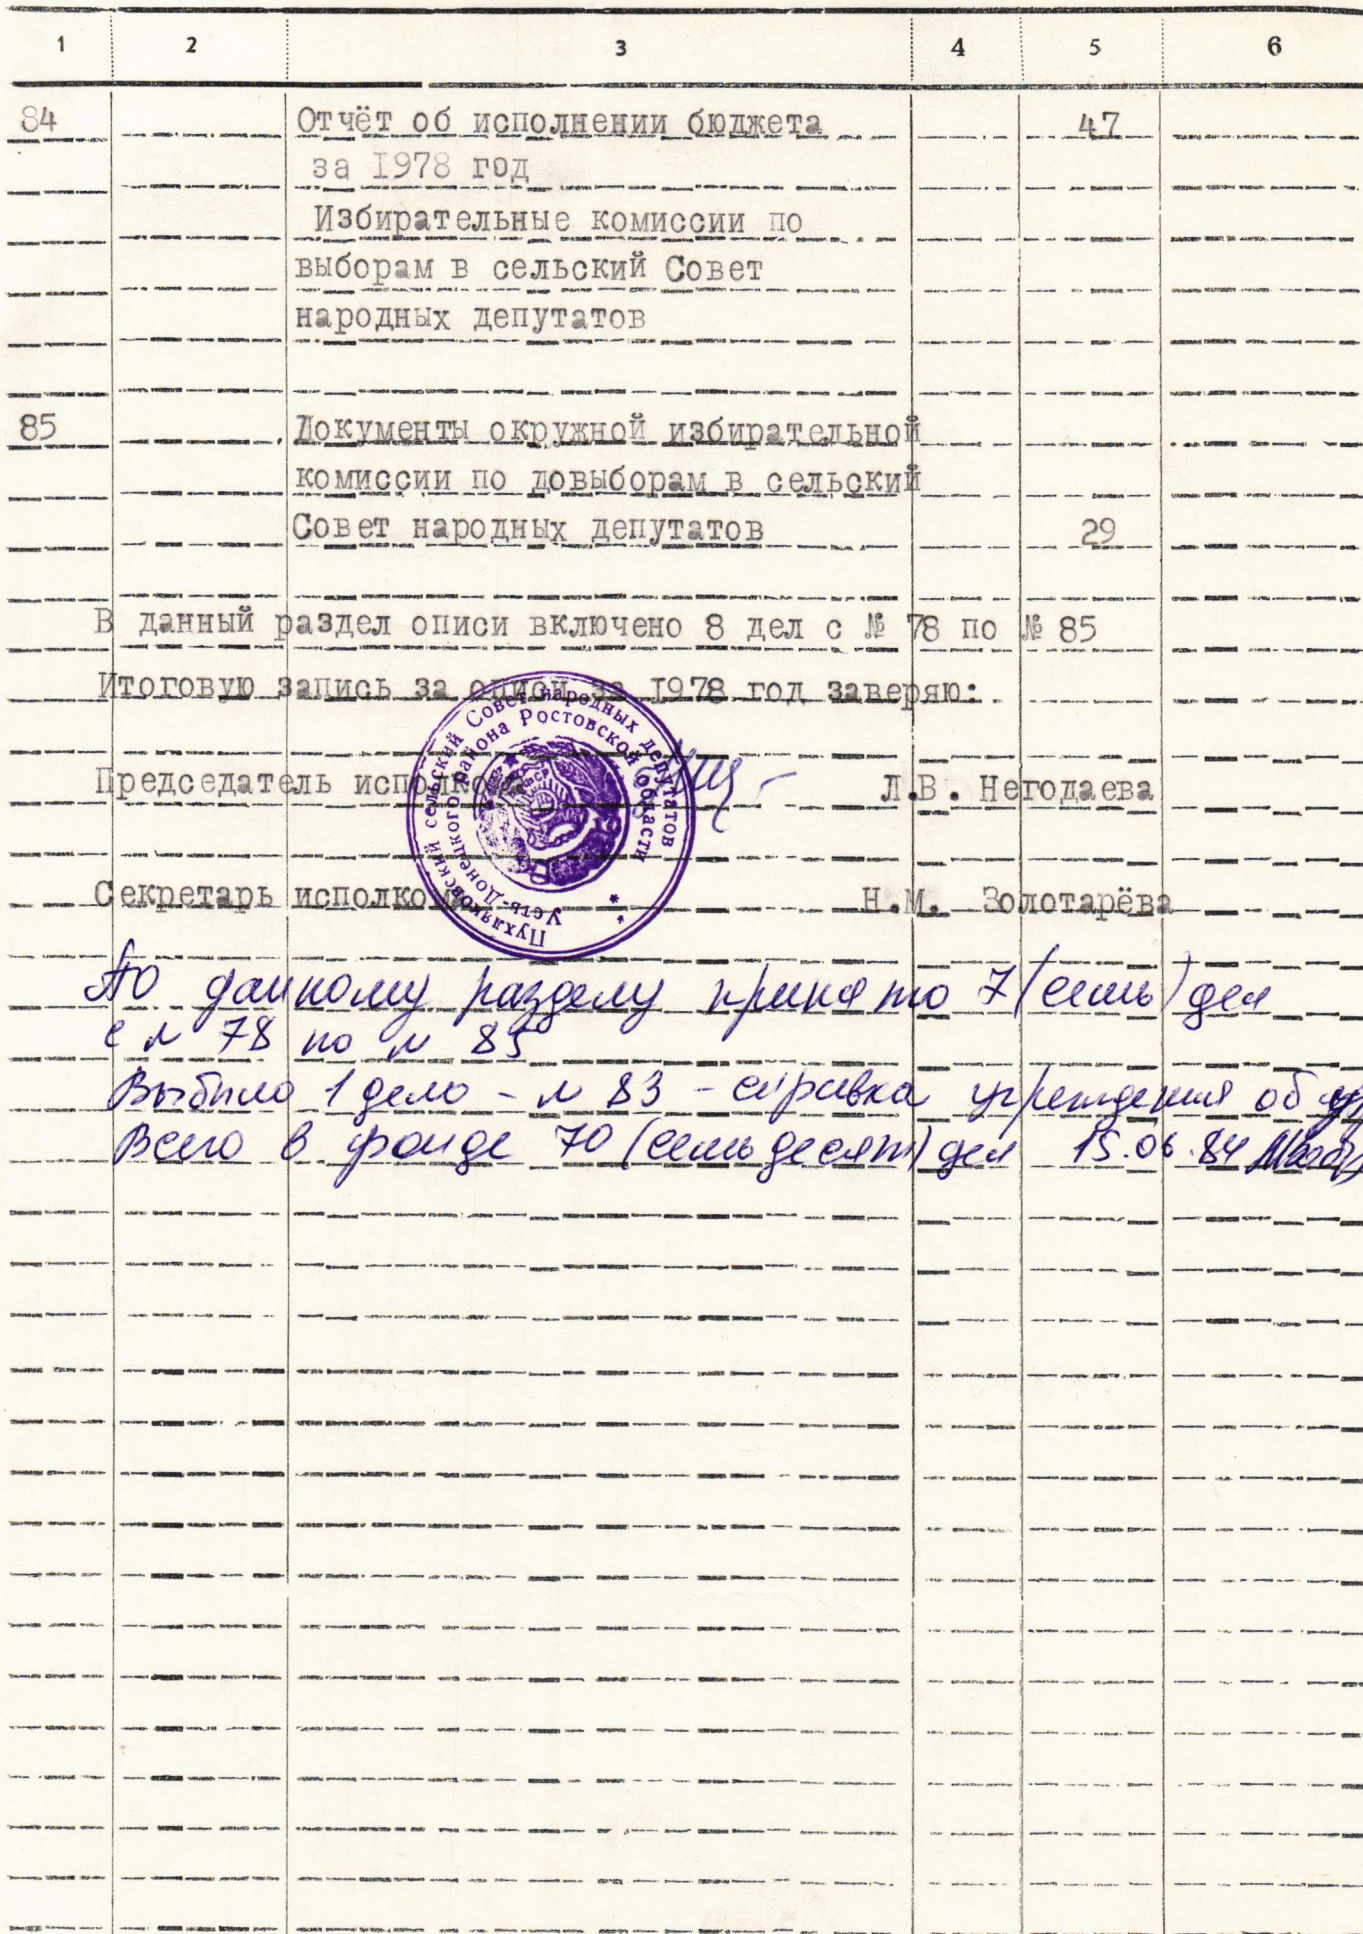 1 2 3 4 5 6
84 Отчёт об исполнении бюджета 47
за 1978 год
Избирательные комиссии по
выборам в сельский Совет
народных депутатов
85 Документы окружной избирательной
комиссии по довыборам в сельский
Совет народных депутатов 29
В данный раздел описи включено 8 дел с № 78 по № 85
Итоговую запись за описи за 1978 год заверяю:
Председатель исполкома Л.В. Негодаева
Секретарь исполкома Н.М. Золотарёва
Пухляковский сельский Совет народных депутатов
Усть-Донецкого района Ростовской области
По данному разделу принято 7 (семь) дел
с № 78 по № 85
Выбыло 1 дело - № 83 - справка учреждения об
Всего в фонде 70 (семьдесят) дел 15.06.84